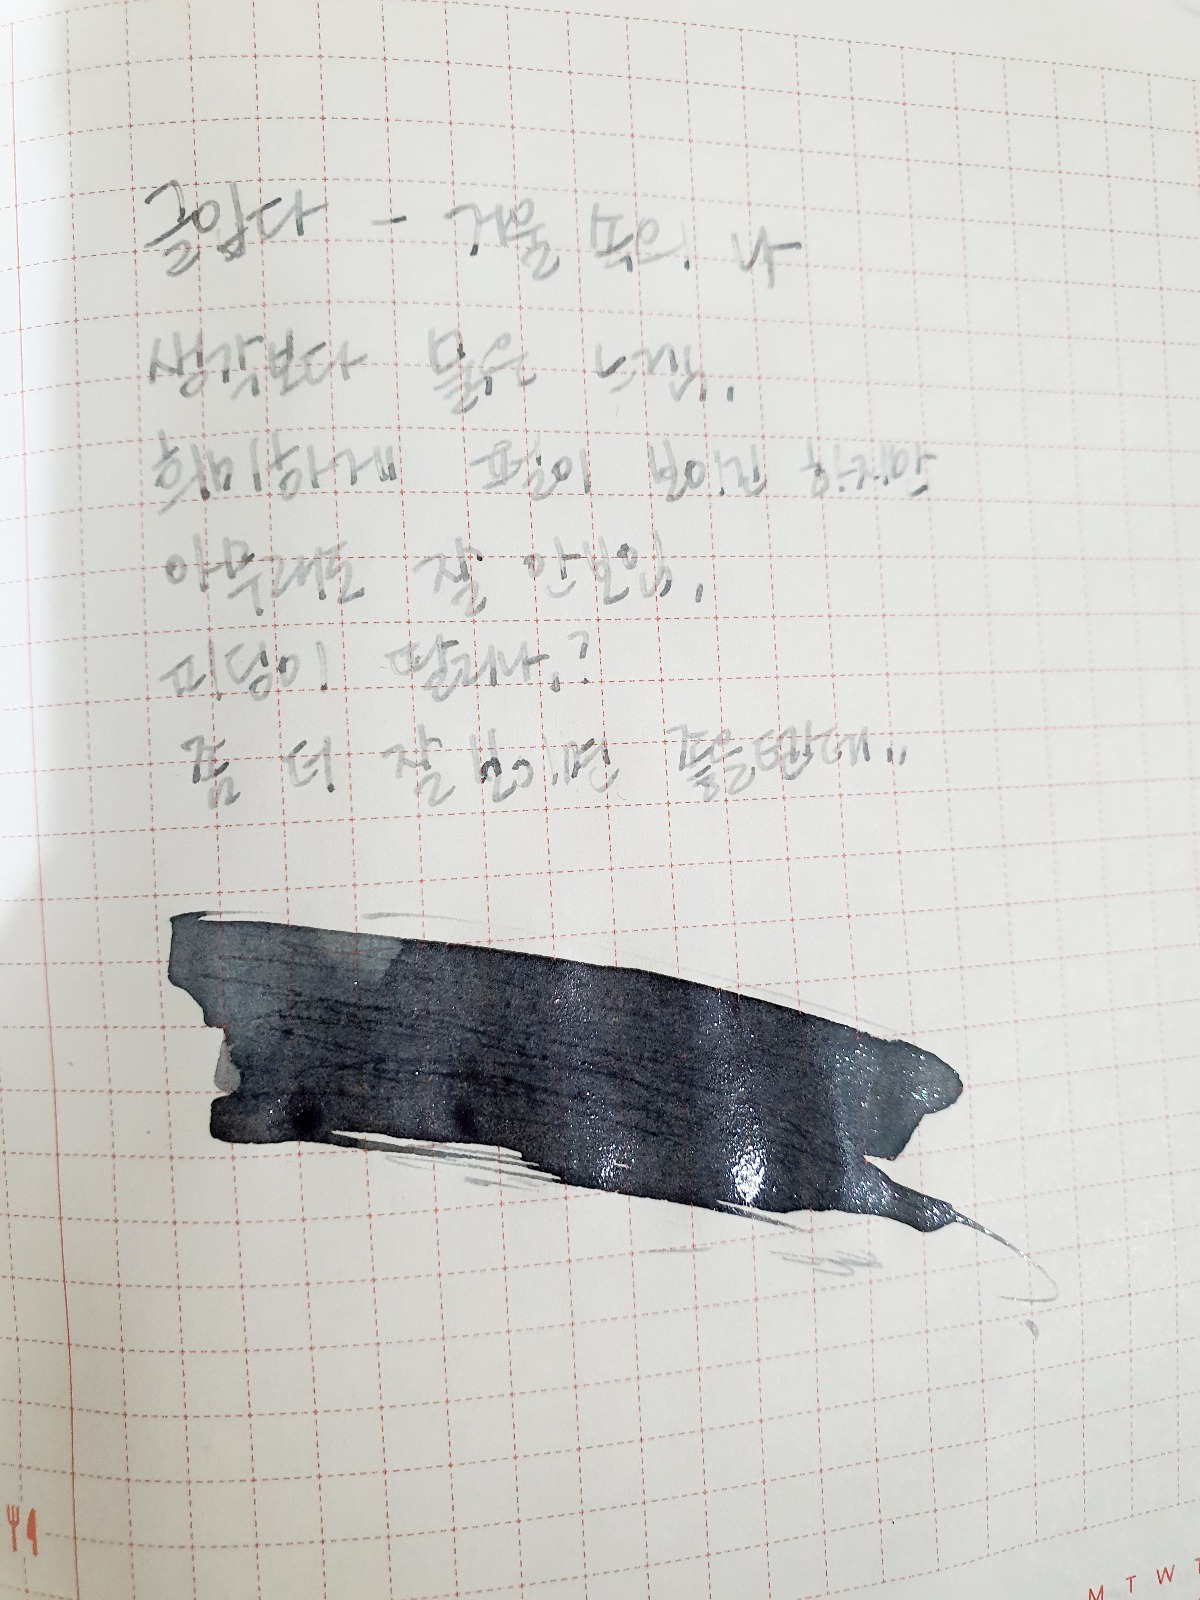 글입다 - 거울 속의 나
생각보다 묽은 느낌.
희미하게 펄이 보이긴 하지만
아무래도 잘 안보임.
피딩이 딸리나,?
좀 더 잘보이면 좋을텐데..
M T W T